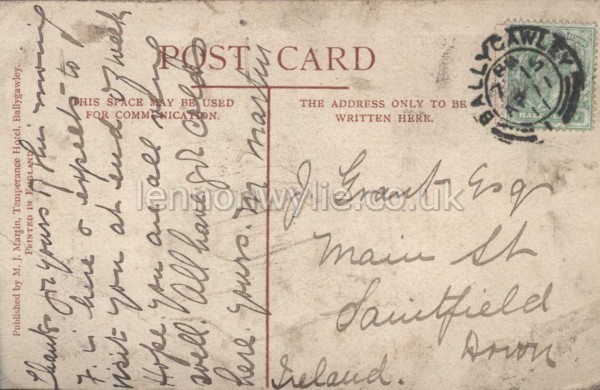 POST CARD
THIS SPACE MAY BE USED
FOR COMMUNICATION.
THE ADDRESS ONLY TO BE
WRITTEN HERE.
Published by M. J. Martin, Temperance Hotel, Ballygawley.
PRINTED IN ENGLAND
Thanks for yours of this morning
F. is here & expects to
visit you at end of week
Hope you are all very
well. Hope you are all
well. all have got colds
here. yours. M Martin
J Grant Esq
Main St
Saintfield
Down
Ireland.
BALLYGAWLEY
HALF
lennonwylie.co.uk